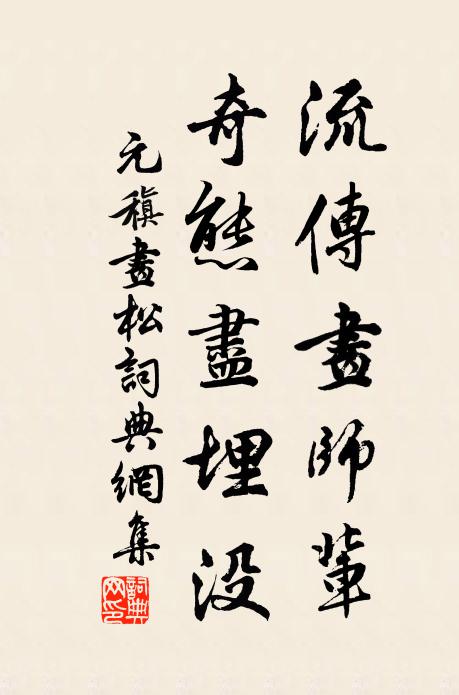 流傳畫師輩
奇態盡埋没
元稹畫松詞典網集
詞典
网印